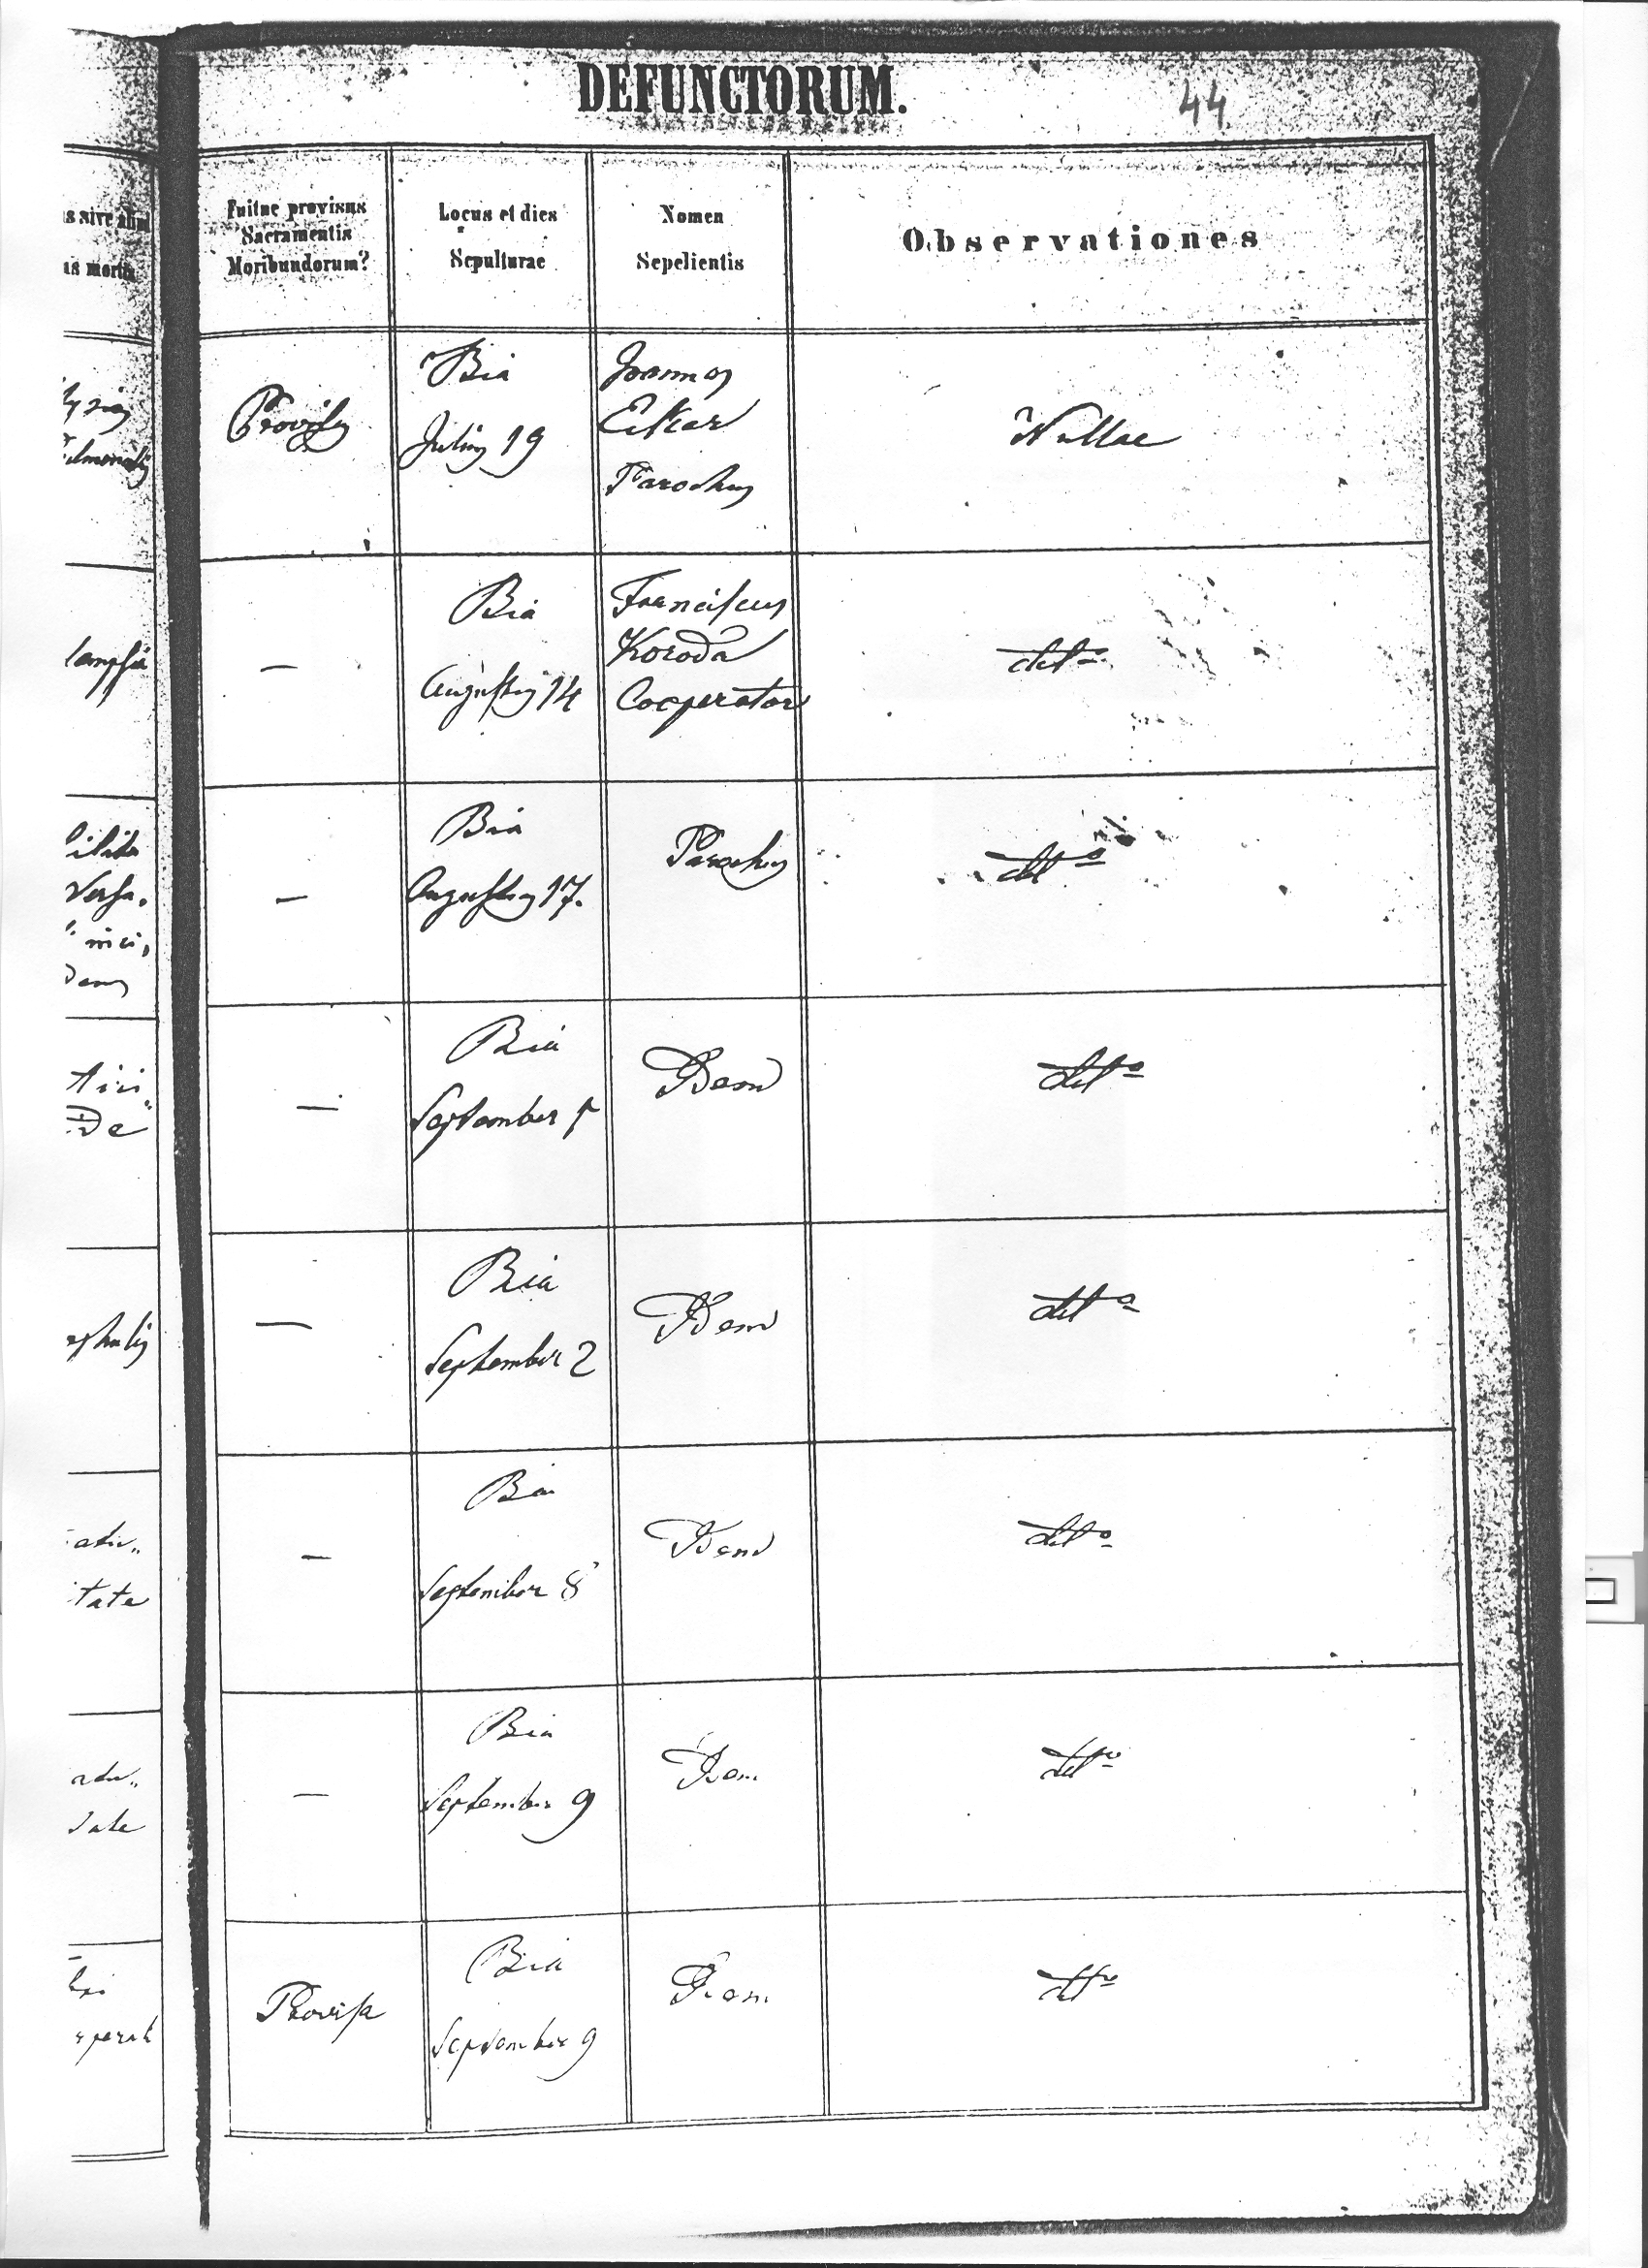 DEFUNCTORUM.
44
s sive alius
us mortis
Fuitne provisus
Sacramentis
Moribundorum?
Locus et dies
Sepulturae
Nomen
Sepelientis
Observationes
Provisus
Bia
Julius 19
Joannes
Parochus
Nullae
—
Bia
Augustus 14
Franciscus
Koroda
Cooperator
detto
—
Bia
Augustus 17.
Parochus
detto
—
Bia
September
Idem
detto
—
Bia
September 2
Idem
detto
—
Bia
September 8
Idem
detto
—
Bia
September 9
Idem
detto
Provisa
Bia
September 9
Idem
detto
tate